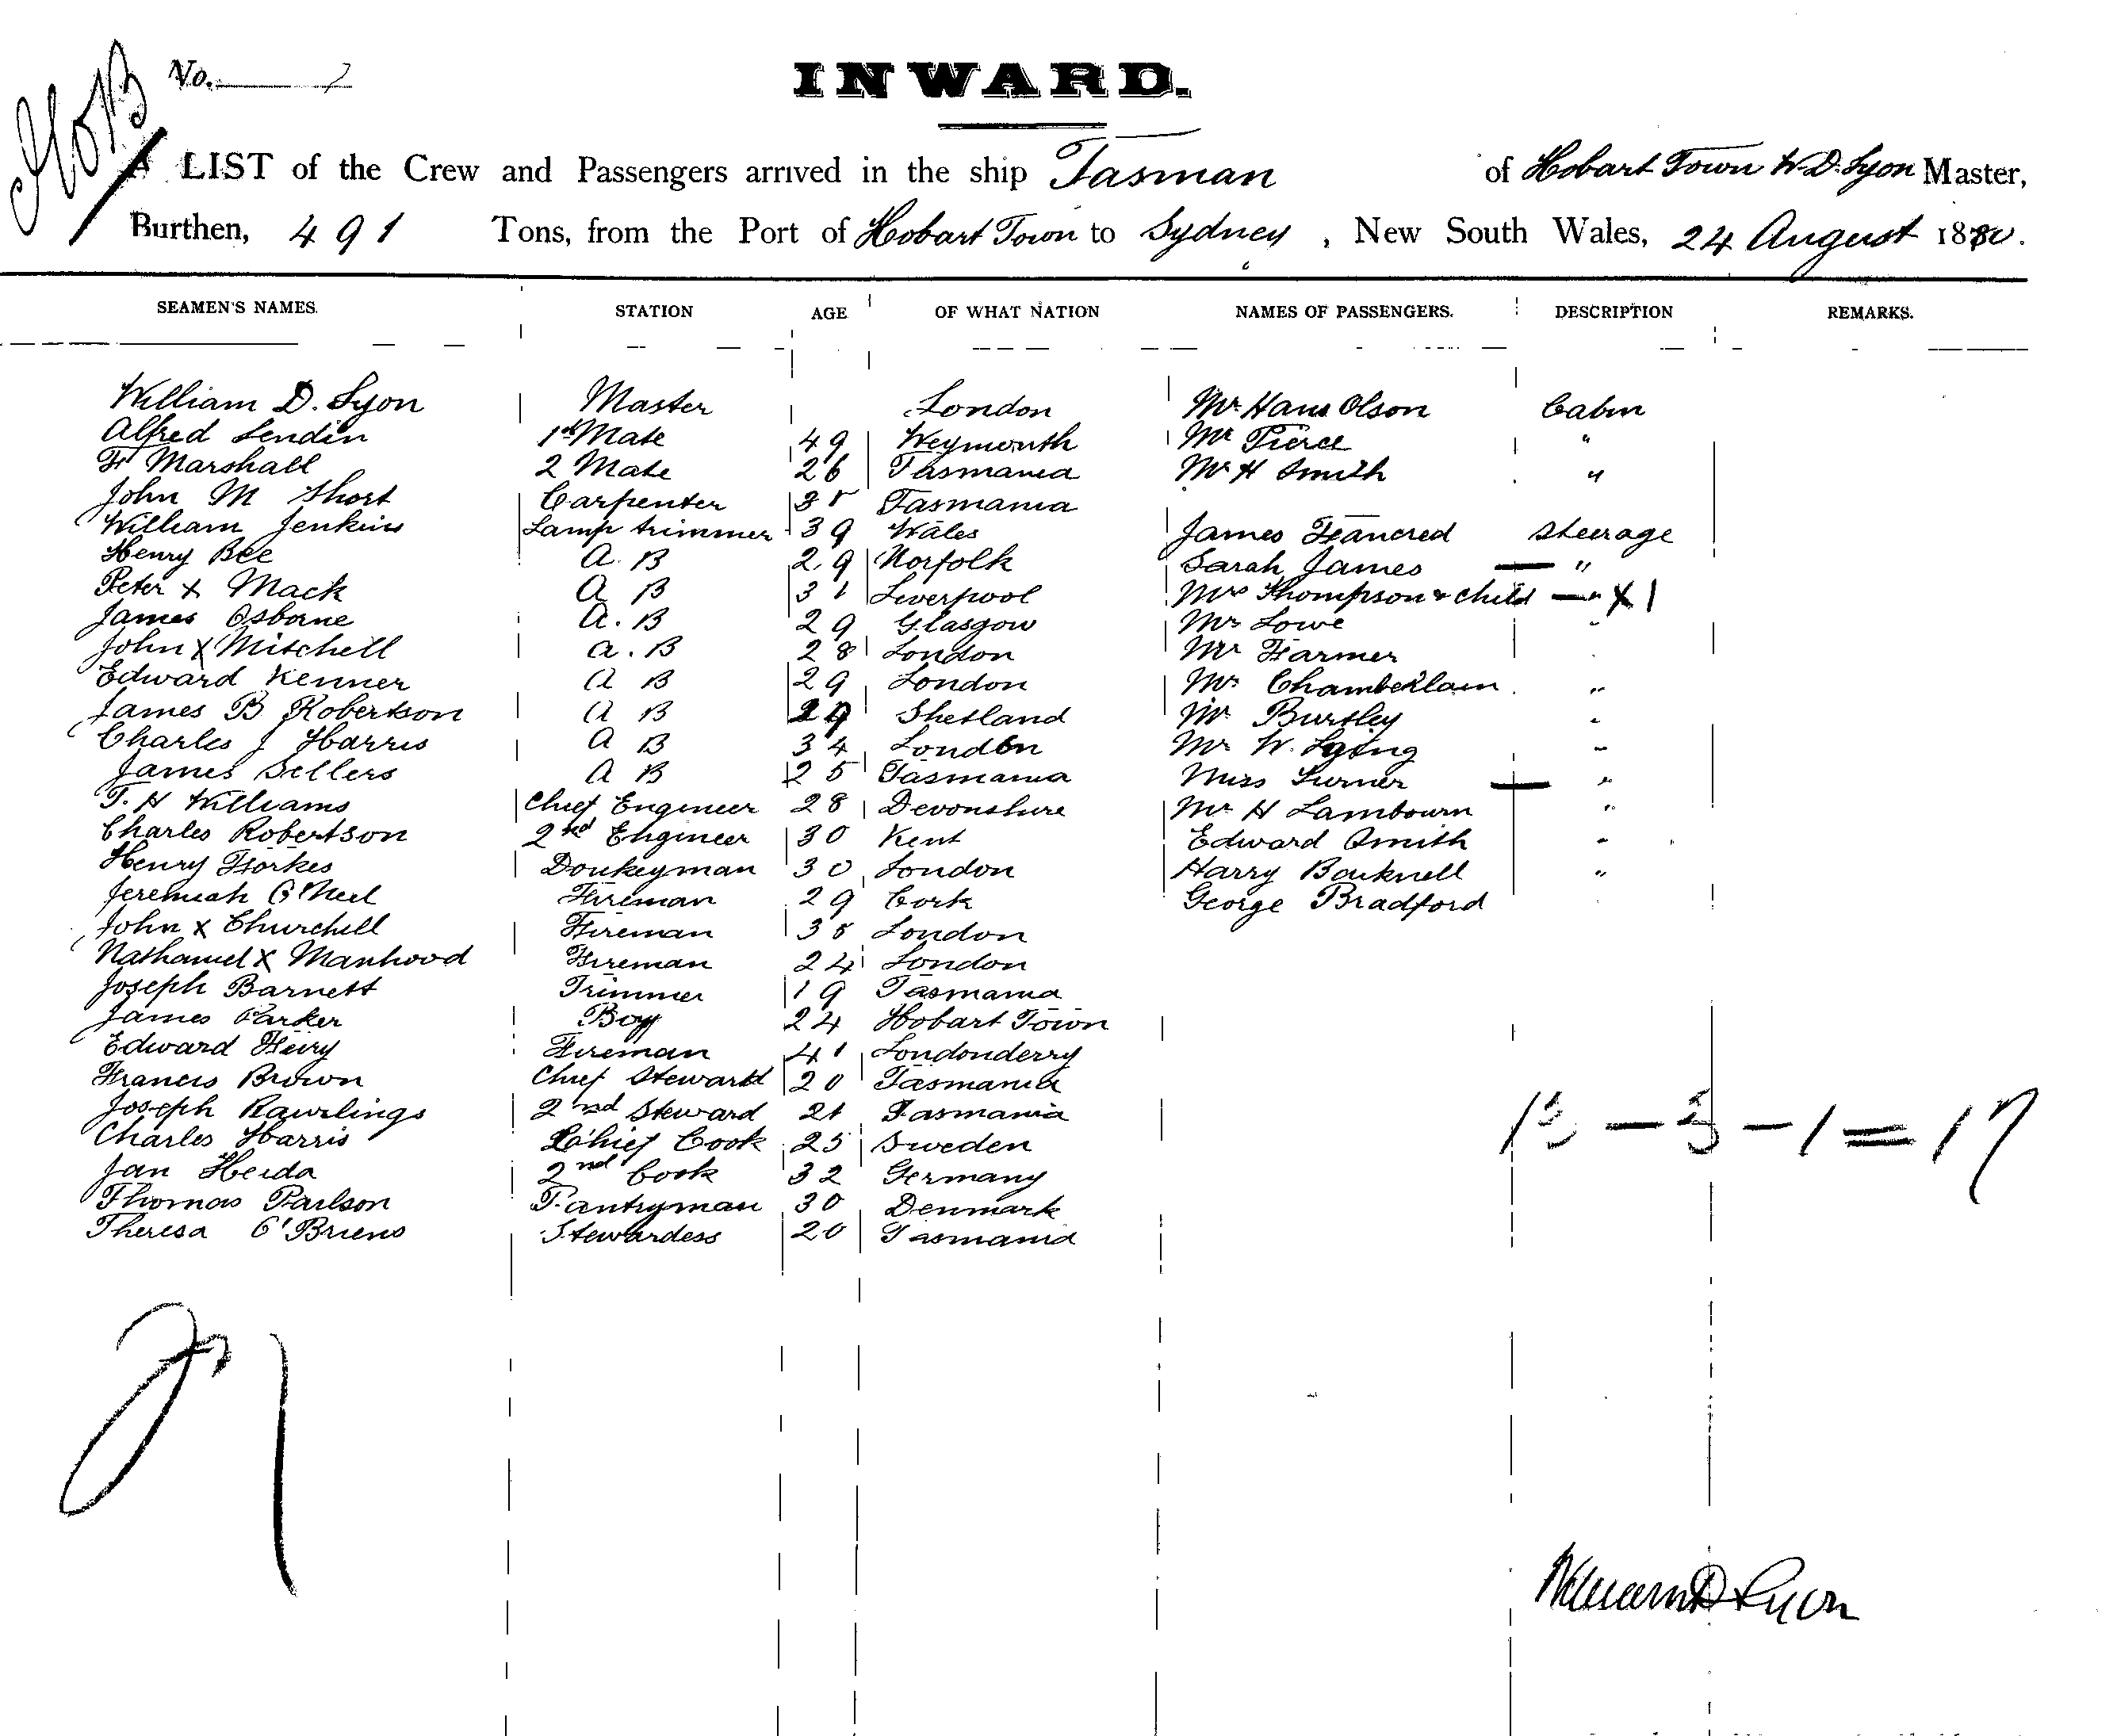 No.
INWARD.
LIST of the Crew and Passengers arrived in the ship Tasman of Hobart Town W. D. Lyon Master,
Burthen, 491 Tons, from the Port of Hobart Town to Sydney, New South Wales, 24 August 1880.
SEAMEN'S NAMES. STATION AGE OF WHAT NATION NAMES OF PASSENGERS. DESCRIPTION REMARKS.
William D. Lyon Master London Mr Hans Olson Cabin
Alfred Lendin 1st Mate 49 Weymouth Mr Pierce "
Marshall 2 Mate 26 Tasmania Mr H Smith "
John M Short Carpenter Tasmania
William Jenkins Lamp trimmer 39 Wales James Tancred Steerage
Henry Bee A. B 29 Norfolk Sarah James — "
Peter X Mack A B 31 Liverpool Mrs Thompson & child — " X 1
James Osborne A. B 29 Glasgow Mr Lowe "
John X Mitchell A. B 28 London Mr Farmer
Edward Kenner A B 29 London Mr Chamberlain "
James B Robertson A B 29 Shetland Mr Burtley "
Charles J Harris A B 34 London Mr W. "
James Sellers A B 25 Tasmania Miss Turner — "
T. H Williams Chief Engineer 28 Devonshire Mr H Lambourn "
Charles Robertson 2nd Engineer 30 Kent Edward Smith "
Henry Donkeyman 30 London Harry "
Jeremiah O'Neil Fireman 29 Cork George Bradford
John X Churchill Fireman 35 London
Nathaniel X Manhood Fireman 24 London
Joseph Barnett Trimmer 19 Tasmania
James Parker Boy 24 Hobart Town
Edward Fireman 41 Londonderry
Francis Brown Chief Steward 20 Tasmania
Joseph Rawlings 2nd Steward 21 Tasmania
Charles Harris Chief Cook 25 Sweden
Jan Heida 2nd Cook 32 Germany
Thomas Parlson Pantryman 30 Denmark
Theresa O'Briens Stewardess 20 Tasmania
13 — 3 — 1 = 17
William D Lyon